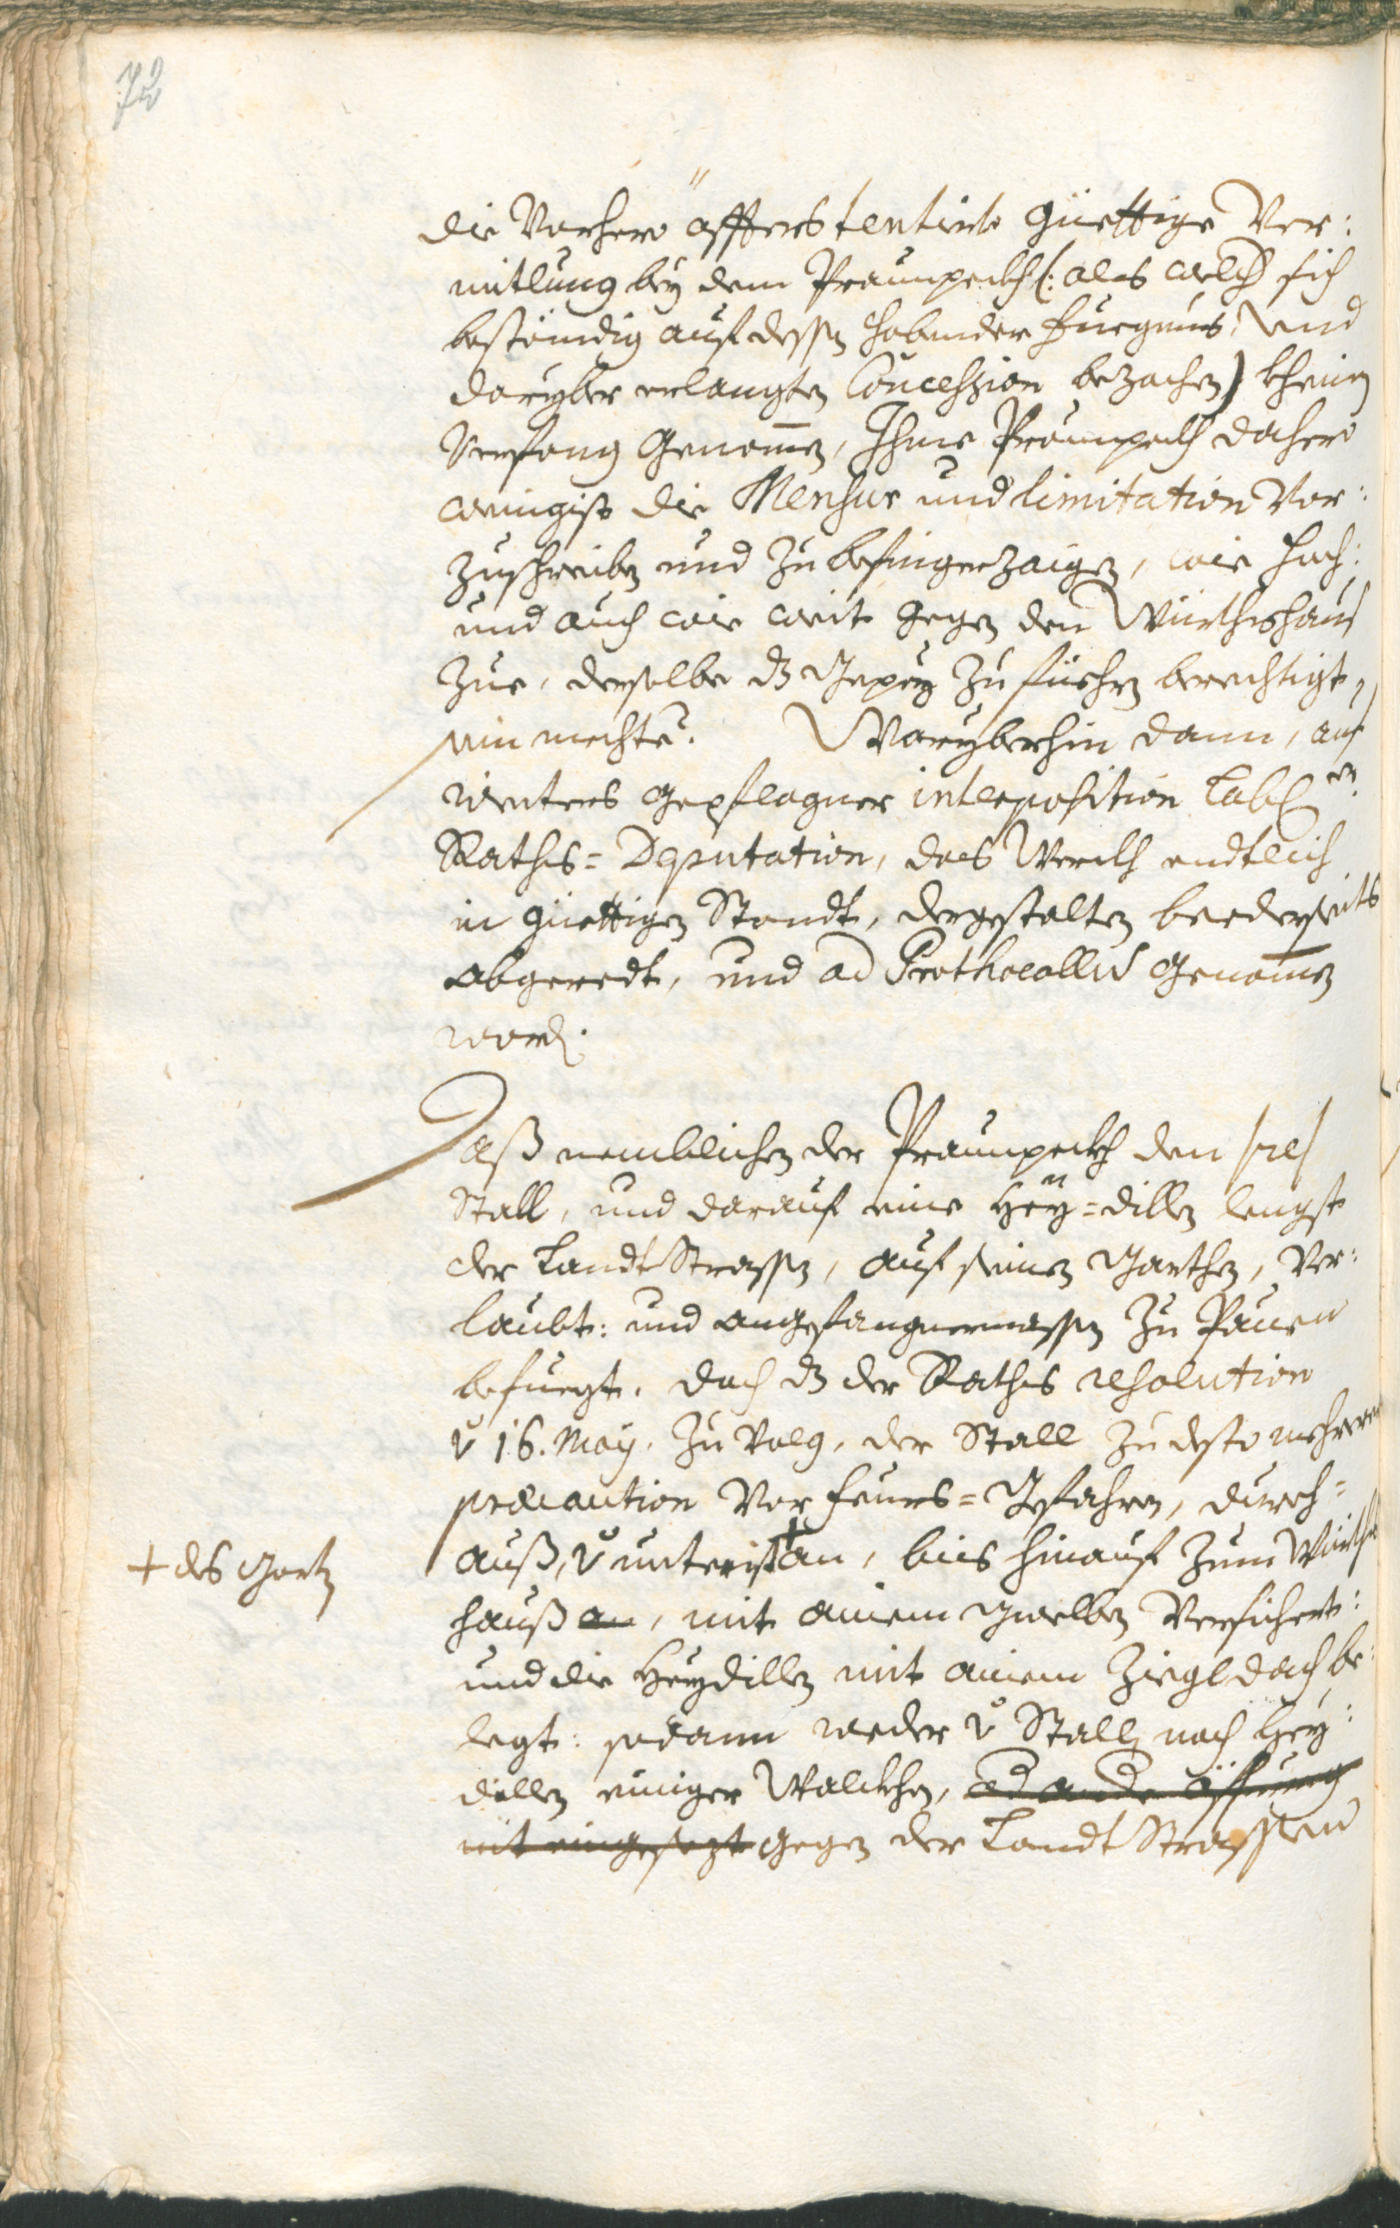 72
die Vorhero öffters tentirte güettige Ver:
mitlung bey dem Praunpeckh (: als welch sich
bestendig auf dessen habender fuegnus, Und
daryber erlangten Concession bezochen) kheinen
Verfang genomen, Ihme Praunpeckh dahero
wenigist die Mensur und limitation Vor:
zuschreiben und zu befingerzaigen, wie hoch:
und auch wie weit gegen den Würthshaus
zue, derselbe dz Gepey zu füehren berechtigt
sein mechte. Woryberhin dann, auf
weiters gepflogner interposition Lobl:en
Raths-Deputation, das Werckh endtlich
in güettigen Standt, dergestalten beederseits
abgeredt, und ad Prothocollum genomen
worden.
Daß nemblichen der Praunpeckh den
Stall, und darauf eine Hey-dillen lengst
der LandtStrassen, auf seinen Garthen, Ver:
laubt: und angefangnermassen zu Pauen
befuegt, doch dz der Raths resolution
v 16. May, zu Volg, der Stall zu desto mehrern
præcaution Vor feurs-Gefahren, durch-
auß, v unterist + an, bis hinauf zum Würths
hauß an, mit ainem Gwelben Versichert:
und die Heydillen mit ainem Ziegldach be:
legt: sodann weder v Stall noch Hey:
dillen einiger Walckhen, od ande öffnung
nit eingesezt gegen der LandtStrassen
+ des Garten